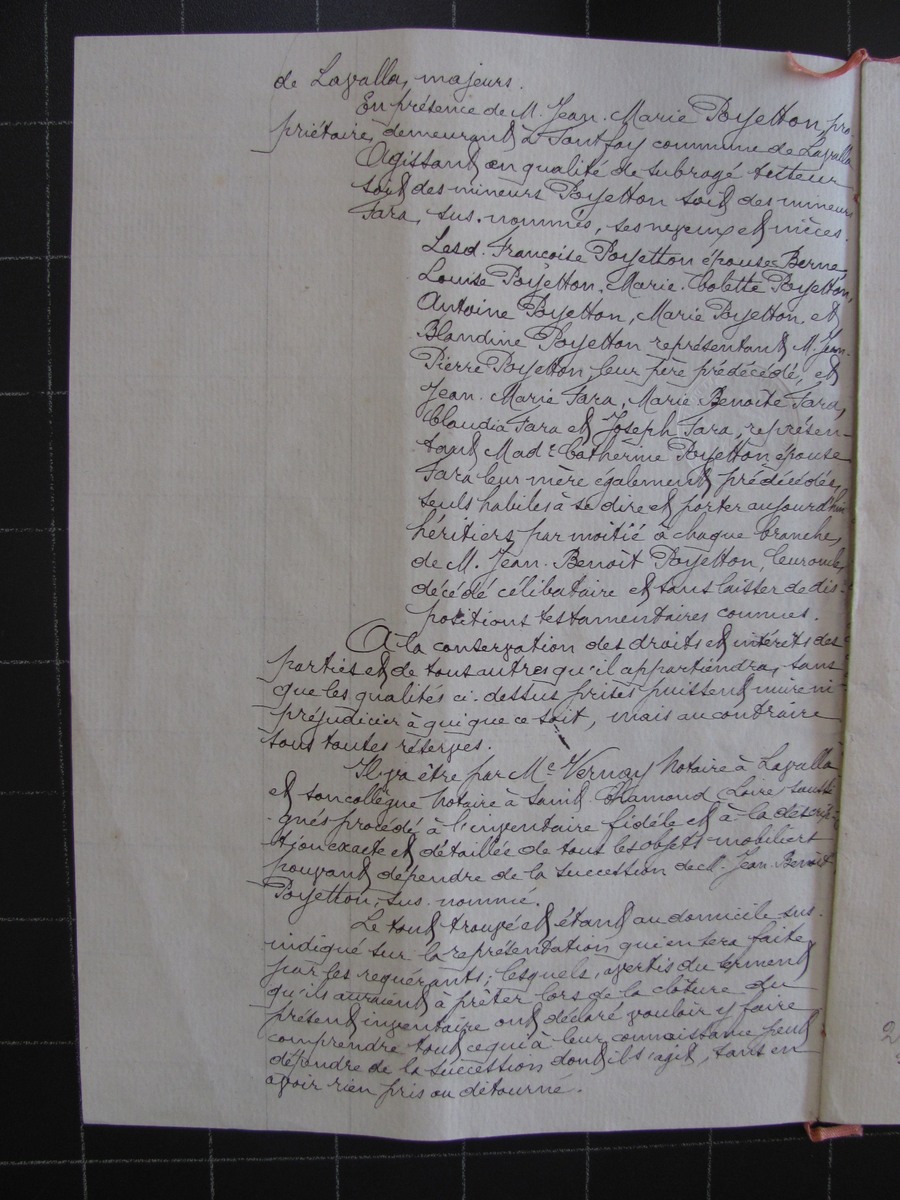 de Lavalla, majeurs.
En présence de M. Jean-Marie Poyetton, pro-
priétaire, demeurant à Fontfoy commune de Lavalla
Agissant en qualité de subrogé tuteur
soit des mineurs Poyetton soit des mineurs
Fara, sus-nommés, ses neveux et nièces.
Lesd. Francoise Poyetton épouse Berne,
Louise Poyetton, Marie-Colette Poyetton,
Antoine Poyetton, Marie Poyetton et
Blandine Poyetton représentant M. Jean-
Pierre Poyetton, leur père prédécédé, et
Jean-Marie Fara, Marie Benoite Fara,
Claudia Fara et Joseph Fara, représen-
tant Made Catherine Poyetton épouse
Fara leur mère également prédécédée,
seuls habiles à se dire et porter aujourd'hui
héritiers par moitié à chaque branche,
de M. Jean-Benoît Poyetton, leur oncle,
décédé célibataire et sans laisser de dis-
positions testamentaires connues.
A la conservation des droits et intérêts des
parties et de tous autres qu'il appartiendra, sans
que les qualités ci-dessus prises puissent nuire ni
préjudicier à qui que ce soit, mais au contraire
sous toutes réserves.
Il va être par Me Vernay Notaire à Lavalla
et son collègue Notaire à Saint-Chamond (Loire) soussi-
gnés procédé à l'inventaire fidèle et à la descrip-
tion exacte et détaillée de tous les objets mobiliers
pouvant dépendre de la succession de M. Jean-Benoît
Poyetton, sus-nommé.
Le tout trouvé et étant au domicile sus-
indiqué sur la représentation qui en sera faite
par les requérants; lesquels, avertis du serment
qu'ils auraient à prêter lors de la clôture du
présent inventaire ont déclaré vouloir y faire
comprendre tout ce qui à leur connaissance peut
dépendre de la succession dont il s'agit, sans en
avoir rien pris ou détourné.